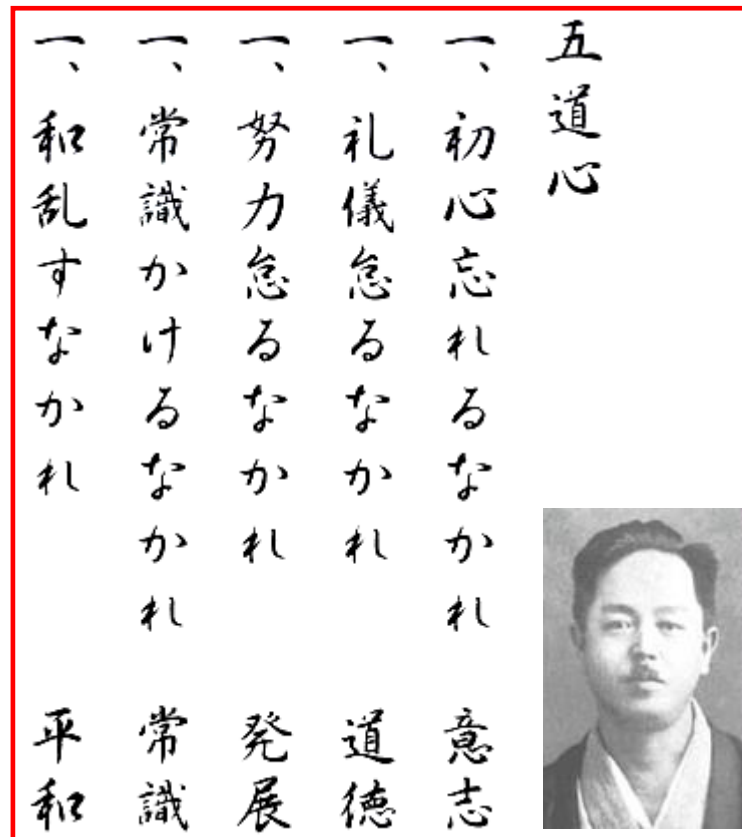 五道心
一、初心忘れるなかれ 意志
一、礼儀怠るなかれ 道徳
一、努力怠るなかれ 発展
一、常識かけるなかれ 常識
一、和乱すなかれ 平和